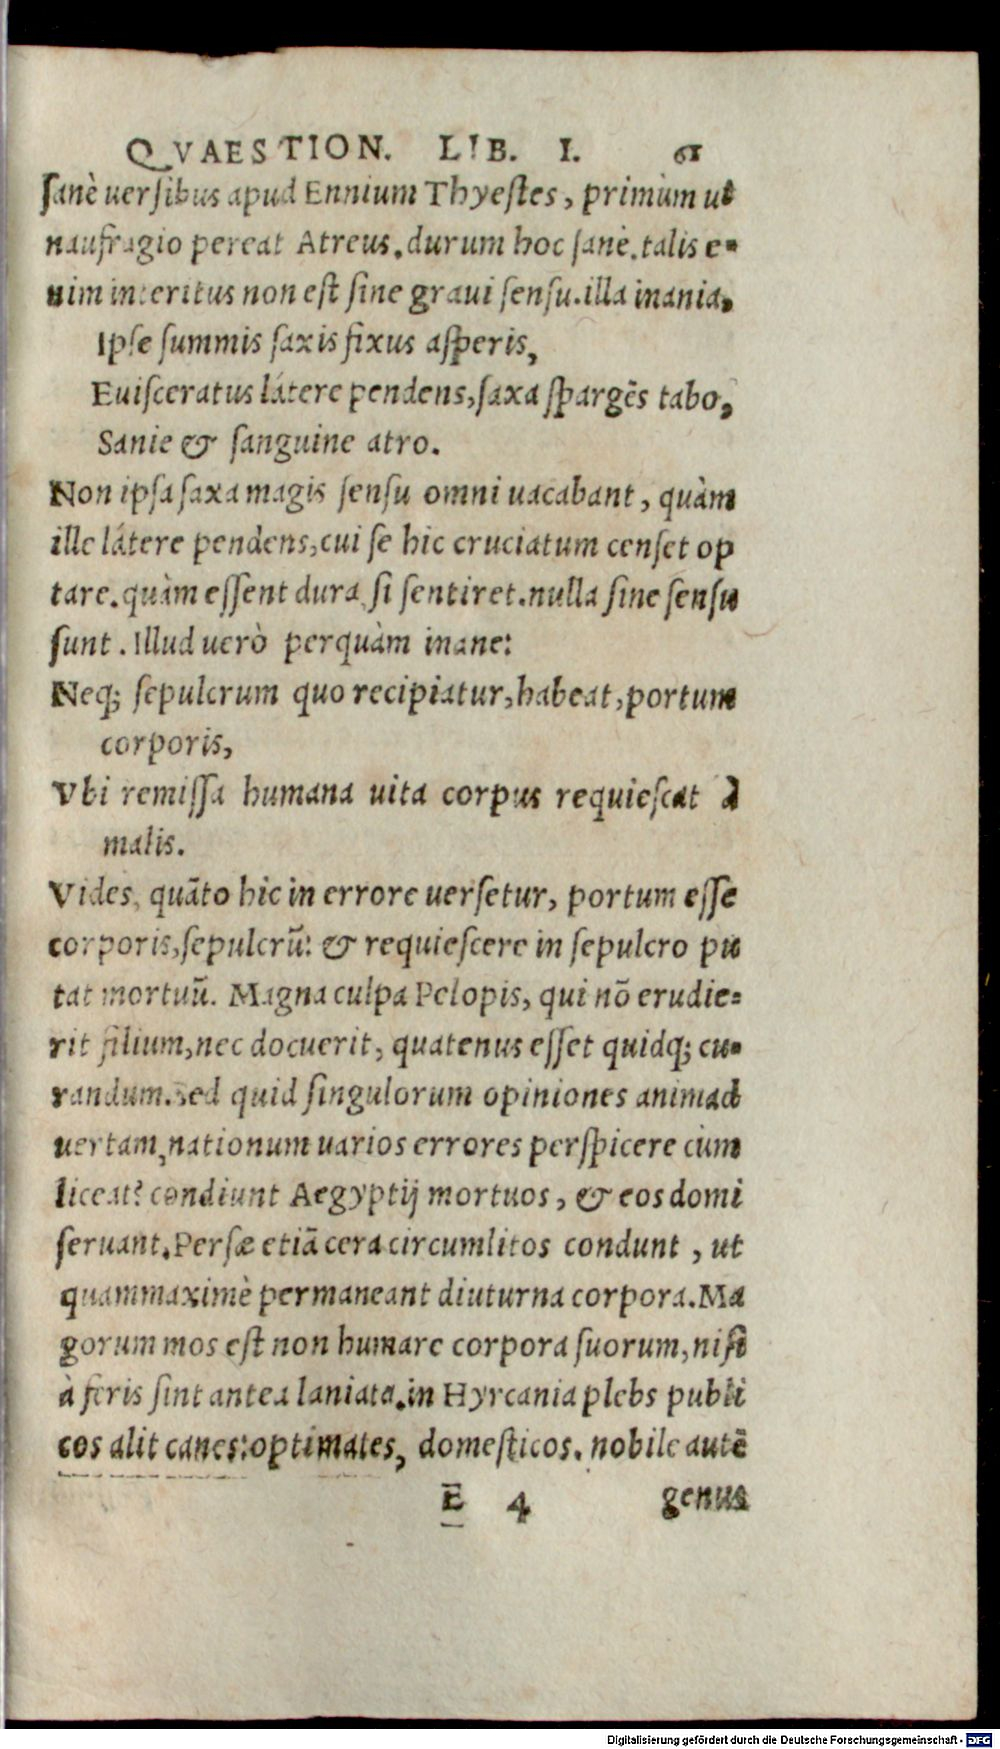 QVAESTION. LIB. I. 61
ſanè uerſibus apud Ennium Thyeſtes, primùm ut
naufragio pereat Atreus. durum hoc ſanè. talis e-
nim interitus non eſt ſine graui ſenſu. illa inania,
Ipſe ſummis ſaxis fixus aſperis,
Euiſceratus látere pendens, ſaxa ſpargēs tabo,
Sanie & ſanguine atro.
Non ipſa ſaxa magis ſenſu omni uacabant, quàm
ille látere pendens, cui ſe hic cruciatum cenſet op
tare. quàm eſſent dura, ſi ſentiret. nulla ſine ſenſu
ſunt. Illud uerò perquàm inane:
Neq; ſepulcrum quo recipiatur, habeat, portum
corporis,
Vbi remiſſa humana uita corpus requieſcat à
malis.
Vides, quāto hic in errore uerſetur, portum eſſe
corporis, ſepulcrū: & requieſcere in ſepulcro pu
tat mortuū. Magna culpa Pelopis, qui nō erudie=
rit filium, nec docuerit, quatenus eſſet quidq; cu-
randum. Sed quid ſingulorum opiniones animad
uertam, nationum uarios errores perſpicere cùm
liceat? condiunt Aegyptij mortuos, & eos domi
ſeruant. Perſæ etiā cera circumlitos condunt, ut
quammaximè permaneant diuturna corpora. Ma
gorum mos eſt non humare corpora ſuorum, niſi
à feris ſint antea laniata. in Hyrcania plebs publi
cos alit canes: optimates, domeſticos. nobile autē
E 4 genus
Digitalisierung gefördert durch die Deutsche Forschungsgemeinschaft - DFG